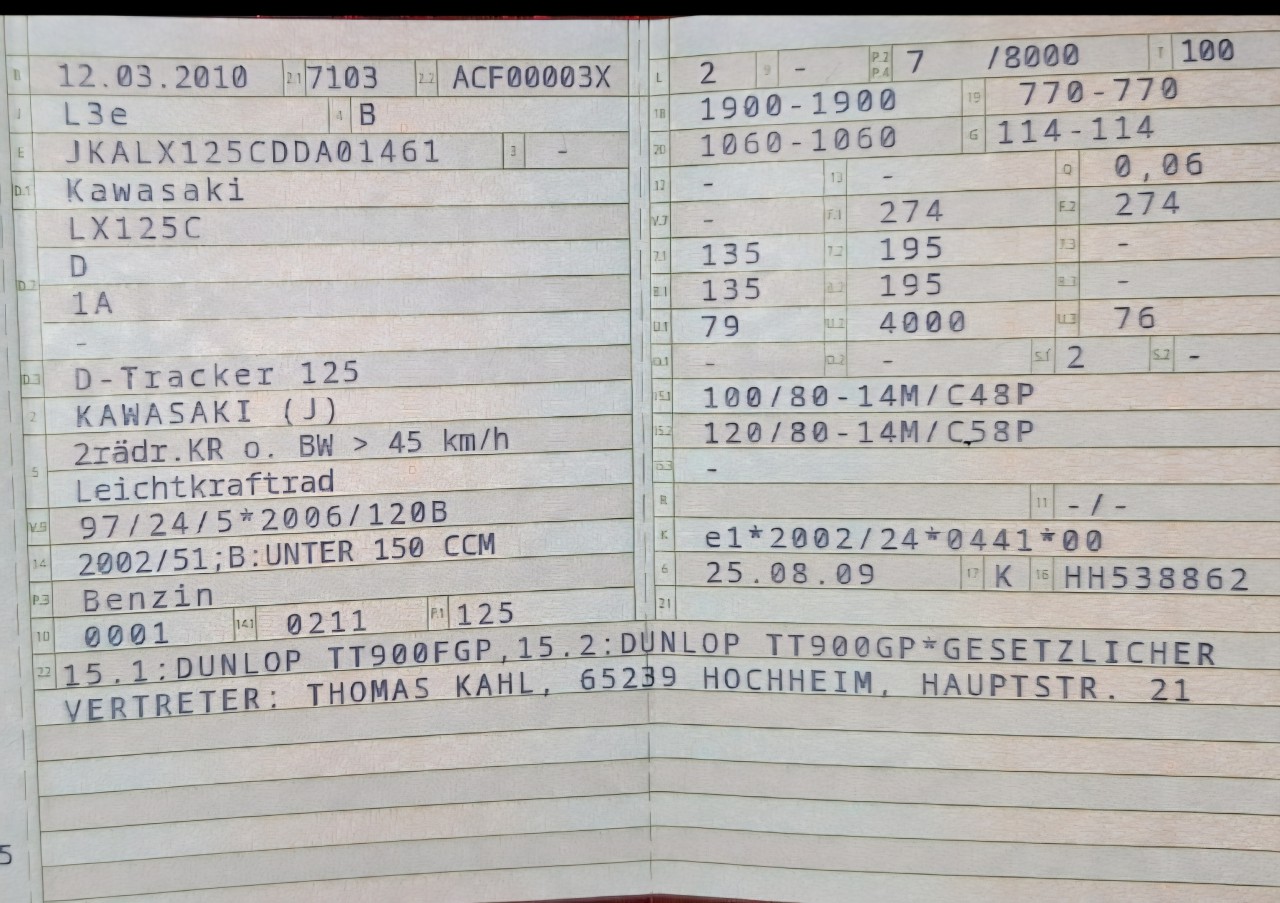 B 12.03.2010 2.1 7103 2.2 ACF00003X
J L3e 4 B
E JKALX125CDDA01461 3 -
D.1 Kawasaki
LX125C
D.2 D
1A
-
D.3 D-Tracker 125
2 KAWASAKI (J)
5 2rädr.KR o. BW > 45 km/h
Leichtkraftrad
V.9 97/24/5*2006/120B
14 2002/51;B:UNTER 150 CCM
P.3 Benzin
10 0001 14.1 0211 P.1 125
L 2 9 - P.2 P.4 7 /8000 T 100
18 1900-1900 19 770-770
20 1060-1060 G 114-114
12 - 13 - Q 0,06
V.7 - F.1 274 F.2 274
7.1 135 7.2 195 7.3 -
8.1 135 8.2 195 8.3 -
U.1 79 U.2 4000 U.3 76
O.1 - O.2 - S.1 2 S.2 -
15.1 100/80-14M/C48P
15.2 120/80-14M/C58P
15.3 -
R 11 -/-
K e1*2002/24*0441*00
6 25.08.09 17 K 16 HH538862
21
22 15.1:DUNLOP TT900FGP,15.2:DUNLOP TT900GP*GESETZLICHER
VERTRETER: THOMAS KAHL, 65239 HOCHHEIM, HAUPTSTR. 21
5